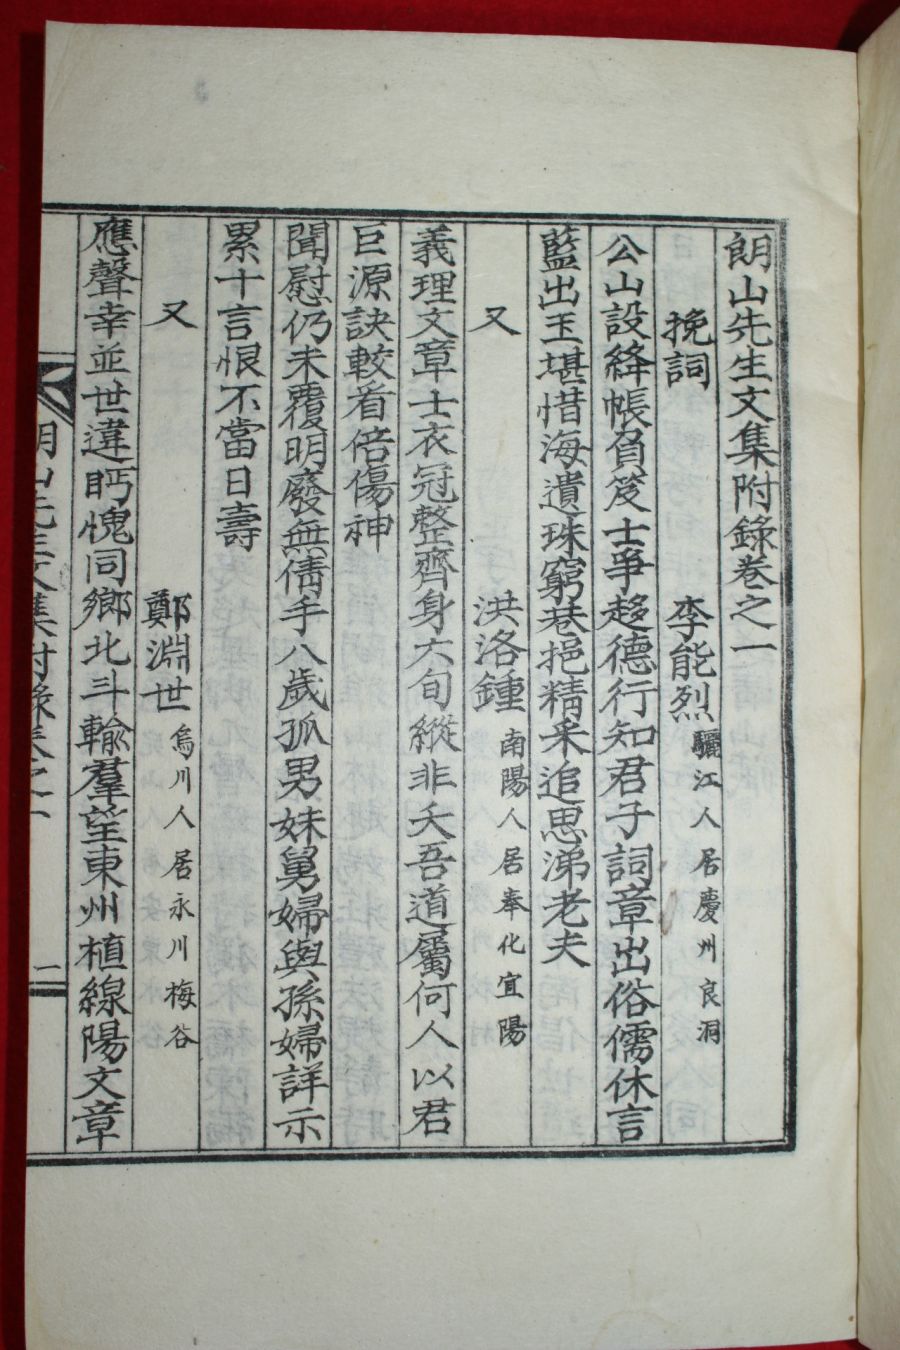 朗山先生文集附錄卷之一
挽詞 李能烈 驪江人居慶州良洞
公山設絳帳負笈士爭趍德行知君子詞章出俗儒休言
藍出玉堪惜海遺珠窮巷挹精采追思涕老夫
又 洪洛鍾 南陽人居奉化宜陽
義理文章士衣冠整齊身六旬縱非夭吾道屬何人以君
巨源訣較看倍傷神
聞慰仍未覆明廢無倩手八歲孤男妹舅婦與孫婦詳示
累十言恨不當日壽
又 鄭淵世 烏川人居永川梅谷
應聲幸並世違眄愧同鄉北斗輸羣望東州植線陽文章